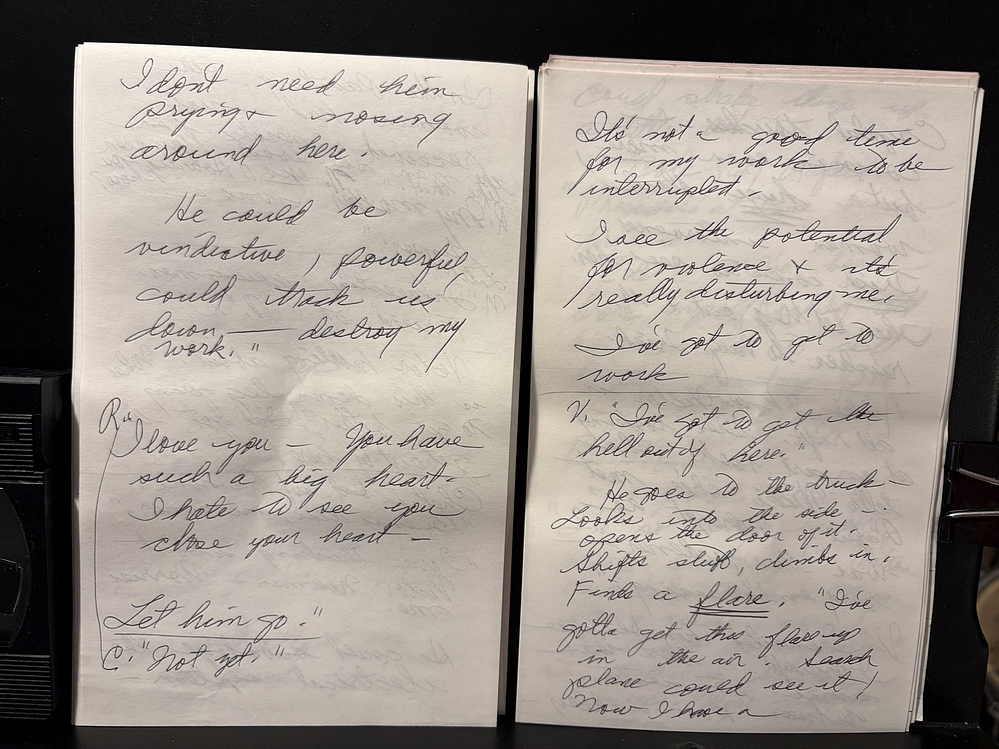 I don't need him
prying & nosing
around here.
He could be
vindictive, powerful,
could track us
down — destroy my
work."
R. "I love you — You have
such a big heart —
I hate to see you
close your heart —
Let him go."
C. "Not yet."
It's not a good time
for my work to be
interrupted —
I see the potential
for violence & it's
really disturbing me.
I've got to get to
work
V. "I've got to get the
hell out of here."
He goes to the truck —
Looks into the side —
opens the door of it.
Shifts stuff, climbs in.
Finds a flare. "I've
gotta get this flare up
in the air. Search
plane could see it!
Now I have a